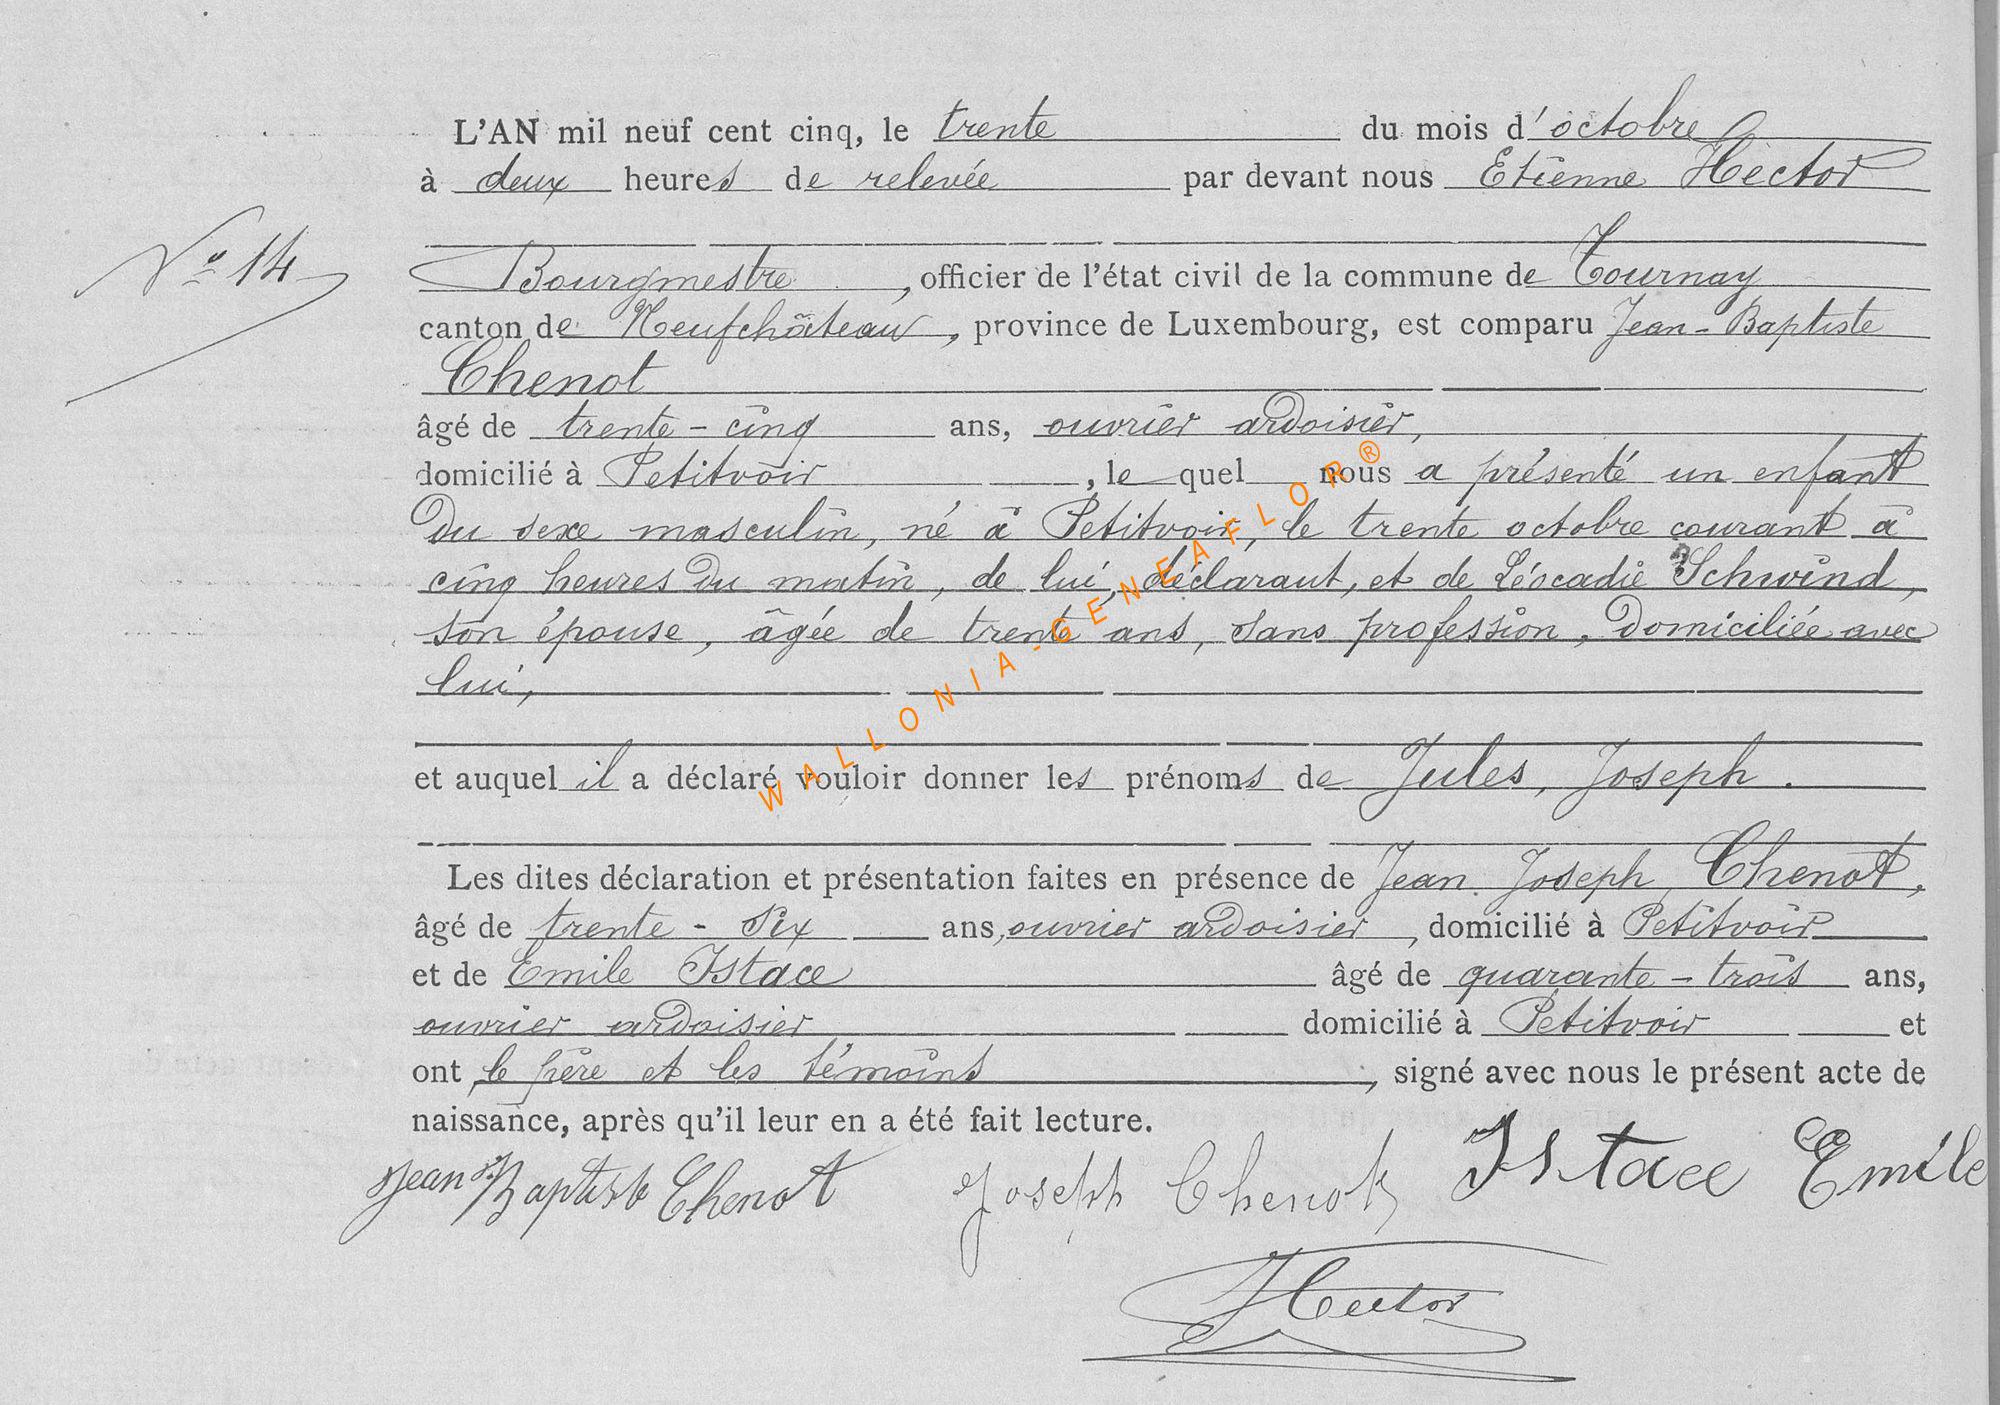 L'AN mil neuf cent cinq, le trente du mois d'octobre
à deux heures de relevée par devant nous Etienne Hector
N° 14
Bourgmestre, officier de l'état civil de la commune de Tournay
canton de Neufchâteau, province de Luxembourg, est comparu Jean-Baptiste
Chenot
âgé de trente-cinq ans, ouvrier ardoisier,
domicilié à Petitvoir, le quel nous a présenté un enfant
du sexe masculin, né à Petitvoir, le trente octobre courant à
cinq heures du matin, de lui, déclarant, et de Léocadie Schwind,
son épouse, âgée de trente ans, sans profession, domiciliée avec
lui,
et auquel il a déclaré vouloir donner les prénoms de Jules, Joseph.
Les dites déclaration et présentation faites en présence de Jean Joseph Chenot,
âgé de trente-six ans, ouvrier ardoisier, domicilié à Petitvoir
et de Emile Istace âgé de quarante-trois ans,
ouvrier ardoisier domicilié à Petitvoir et
ont le père et les témoins, signé avec nous le présent acte de
naissance, après qu'il leur en a été fait lecture.
Jean Baptiste Chenot Joseph Chenot Istace Emile
Hector
WALLONIA-GENEAFLOR®